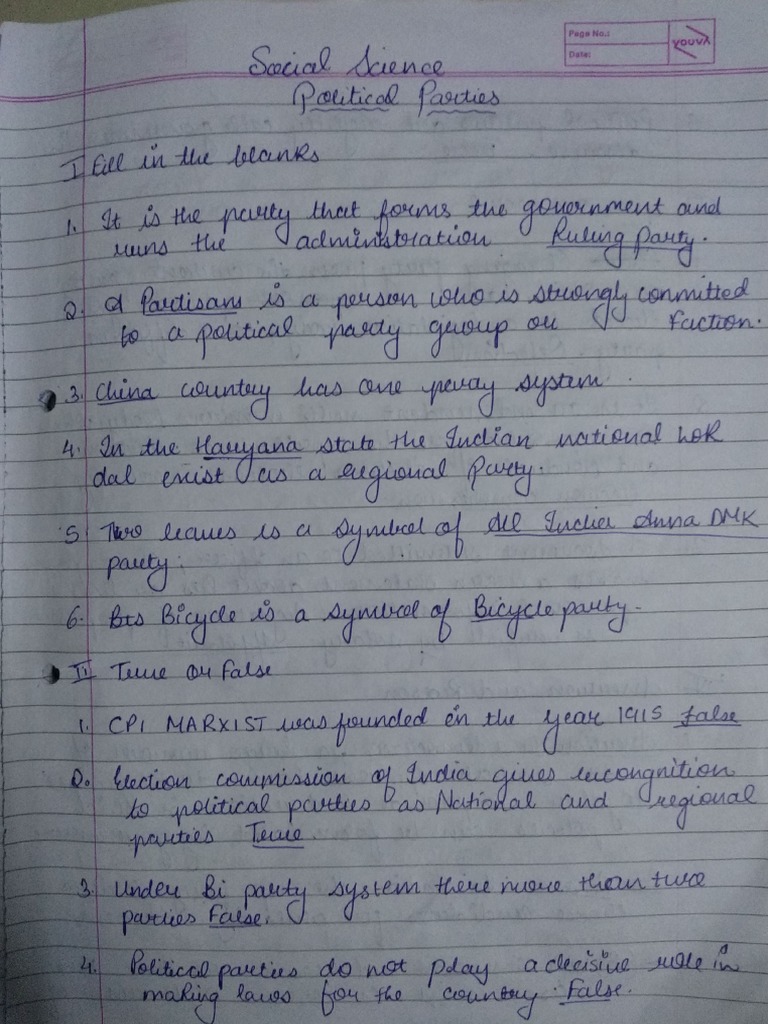 Page No.:
Date:
YOUVA
Social Science
Political Parties
I Fill in the blanks
1. It is the party that forms the government and
runs the administration Ruling party.
2. A Partisans is a person who is strongly committed
to a political party group or faction.
3. China country has one pevay system.
4. In the Haryana state the Indian national LOK
dal exist as a regional Party.
5. Two leaves is a symbol of All India Anna DMK
party;
6. Bts Bicycle is a symbol of Bicycle party.
II True or False
1. CPI MARXIST was founded in the year 1915 false
2. Election commission of India gives recongnition
to political parties as National and regional
parties True.
3. Under Bi party system there more than two
parties False.
4. Political parties do not play a decisive role in
making laws for the country. False.